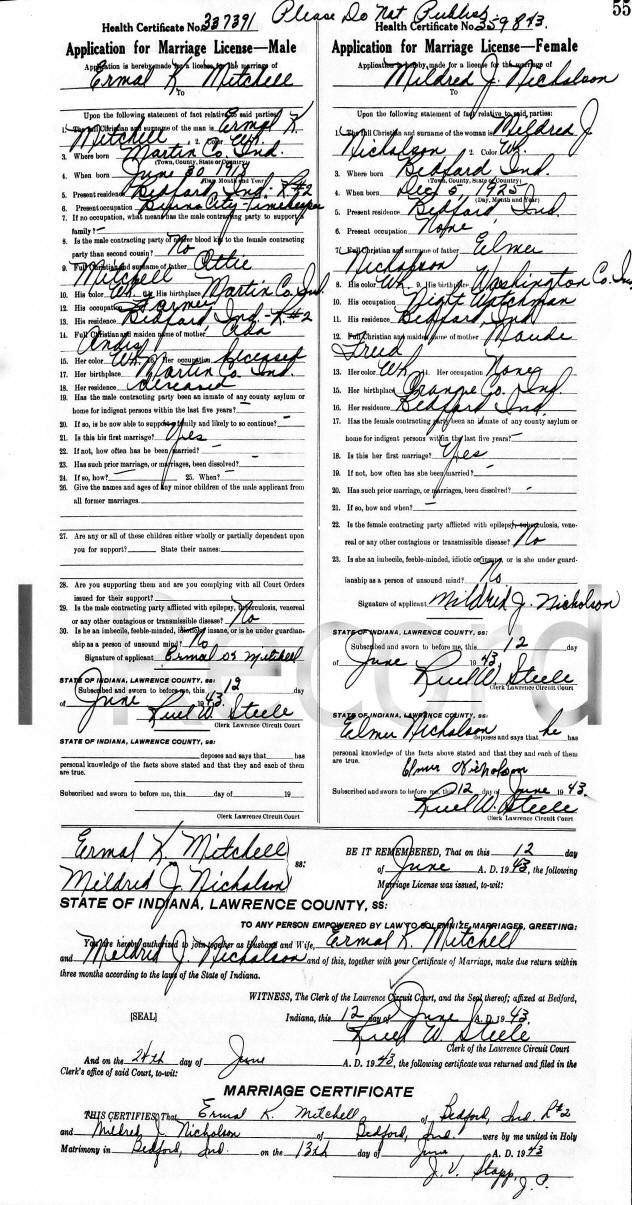 Please Do Not Publish
55
Health Certificate No. 337391
Application for Marriage License—Male
Application is hereby made for a license for the marriage of
Ermal K. Mitchell
To
Upon the following statement of fact relative to said parties:
1. The full Christian and surname of the man is Ermal K.
Mitchell 2. Color Wh.
3. Where born Martin Co. Ind.
(Town, County, State or Country)
4. When born June 30 1913
(Day, Month and Year)
5. Present residence Bedford, Ind. R#2
6. Present occupation City Timekeeper
7. If no occupation, what means has the male contracting party to support a
family? -
8. Is the male contracting party of nearer blood kin to the female contracting
party than second cousin? No
9. Full Christian and surname of father Ottie
Mitchell
10. His color Wh. 11. His birthplace Martin Co. Ind.
12. His occupation Farmer
13. His residence Bedford, Ind. R#2
14. Full Christian and maiden name of mother, Ada
Andis
15. Her color Wh. 16. Her occupation Deceased
17. Her birthplace Martin Co. Ind.
18. Her residence deceased
19. Has the male contracting party been an inmate of any county asylum or
home for indigent persons within the last five years? -
20. If so, is he now able to support a family and likely to so continue? -
21. Is this his first marriage? Yes
22. If not, how often has he been married? -
23. Has such prior marriage, or marriages, been dissolved? -
24. If so, how? - 25. When? -
26. Give the names and ages of any minor children of the male applicant from
all former marriages.
27. Are any or all of these children either wholly or partially dependent upon
you for support? State their names:
28. Are you supporting them and are you complying with all Court Orders
issued for their support?
29. Is the male contracting party afflicted with epilepsy, tuberculosis, venereal
or any other contagious or transmissible disease? No
30. Is he an imbecile, feeble-minded, idiotic or insane, or is he under guardian-
ship as a person of unsound mind? No
Signature of applicant Ermal K Mitchell
STATE OF INDIANA, LAWRENCE COUNTY, ss:
Subscribed and sworn to before me, this 12 day
of June 1943.
Ruel W. Steele
Clerk Lawrence Circuit Court
STATE OF INDIANA, LAWRENCE COUNTY, ss:
deposes and says that has
personal knowledge of the facts above stated and that they and each of them
are true.
Subscribed and sworn to before me, this day of 19
Clerk Lawrence Circuit Court
Health Certificate No. 359843.
Application for Marriage License—Female
Application is hereby made for a license for the marriage of
Mildred J. Nicholson
To
Upon the following statement of fact relative to said parties:
1. The full Christian and surname of the woman is Mildred J.
Nicholson 2. Color W.
3. Where born Bedford Ind.
(Town, County, State or Country)
4. When born Dec. 5, 1925
(Day, Month and Year)
5. Present residence Bedford, Ind
6. Present occupation None
7. Full Christian and surname of father Elmer
Nicholson
8. His color Wh. 9. His birthplace Washington Co. Ind.
10. His occupation Night Watchman
11. His residence Bedford, Ind
12. Full Christian and maiden name of mother Maude
Freed
13. Her color Wh. 14. Her occupation None
15. Her birthplace Orange Co. Ind.
16. Her residence Bedford Ind.
17. Has the female contracting party been an inmate of any county asylum or
home for indigent persons within the last five years? -
18. Is this her first marriage? Yes
19. If not, how often has she been married? -
20. Has such prior marriage, or marriages, been dissolved? -
21. If so, how and when? -
22. Is the female contracting party afflicted with epilepsy, tuberculosis, vene-
real or any other contagious or transmissible disease? No
23. Is she an imbecile, feeble-minded, idiotic or insane, or is she under guard-
ianship as a person of unsound mind? No
Signature of applicant Mildred J. Nicholson
STATE OF INDIANA, LAWRENCE COUNTY, ss:
Subscribed and sworn to before me, this 12 day
of June 1943.
Ruel W. Steele
Clerk Lawrence Circuit Court
STATE OF INDIANA, LAWRENCE COUNTY, ss:
Elmer Nicholson deposes and says that he has
personal knowledge of the facts above stated and that they and each of them
are true.
Elmer Nicholson
Subscribed and sworn to before me, this 12 day of June 1943.
Ruel W. Steele
Clerk Lawrence Circuit Court
Ermal K. Mitchell
Mildred J. Nicholson
ss:
BE IT REMEMBERED, That on this 12 day
of June A. D. 1943, the following
Marriage License was issued, to-wit:
STATE OF INDIANA, LAWRENCE COUNTY, ss:
TO ANY PERSON EMPOWERED BY LAW TO SOLEMNIZE MARRIAGES, GREETING:
You are hereby authorized to join together as Husband and Wife, Ermal K. Mitchell
and Mildred J. Nicholson and of this, together with your Certificate of Marriage, make due return within
three months according to the laws of the State of Indiana.
WITNESS, The Clerk of the Lawrence Circuit Court, and the Seal thereof; affixed at Bedford,
[SEAL] Indiana, this 12 day of June A. D. 1943.
Ruel W. Steele
Clerk of the Lawrence Circuit Court
And on the 24th day of June A. D. 1943, the following certificate was returned and filed in the
Clerk's office of said Court, to-wit:
MARRIAGE CERTIFICATE
THIS CERTIFIES, That Ermal K. Mitchell of Bedford, Ind. R#2
and Mildred J. Nicholson of Bedford, Ind. were by me united in Holy
Matrimony in Bedford, Ind. on the 13th day of June A. D. 1943
J. V. Stapp, J. P.